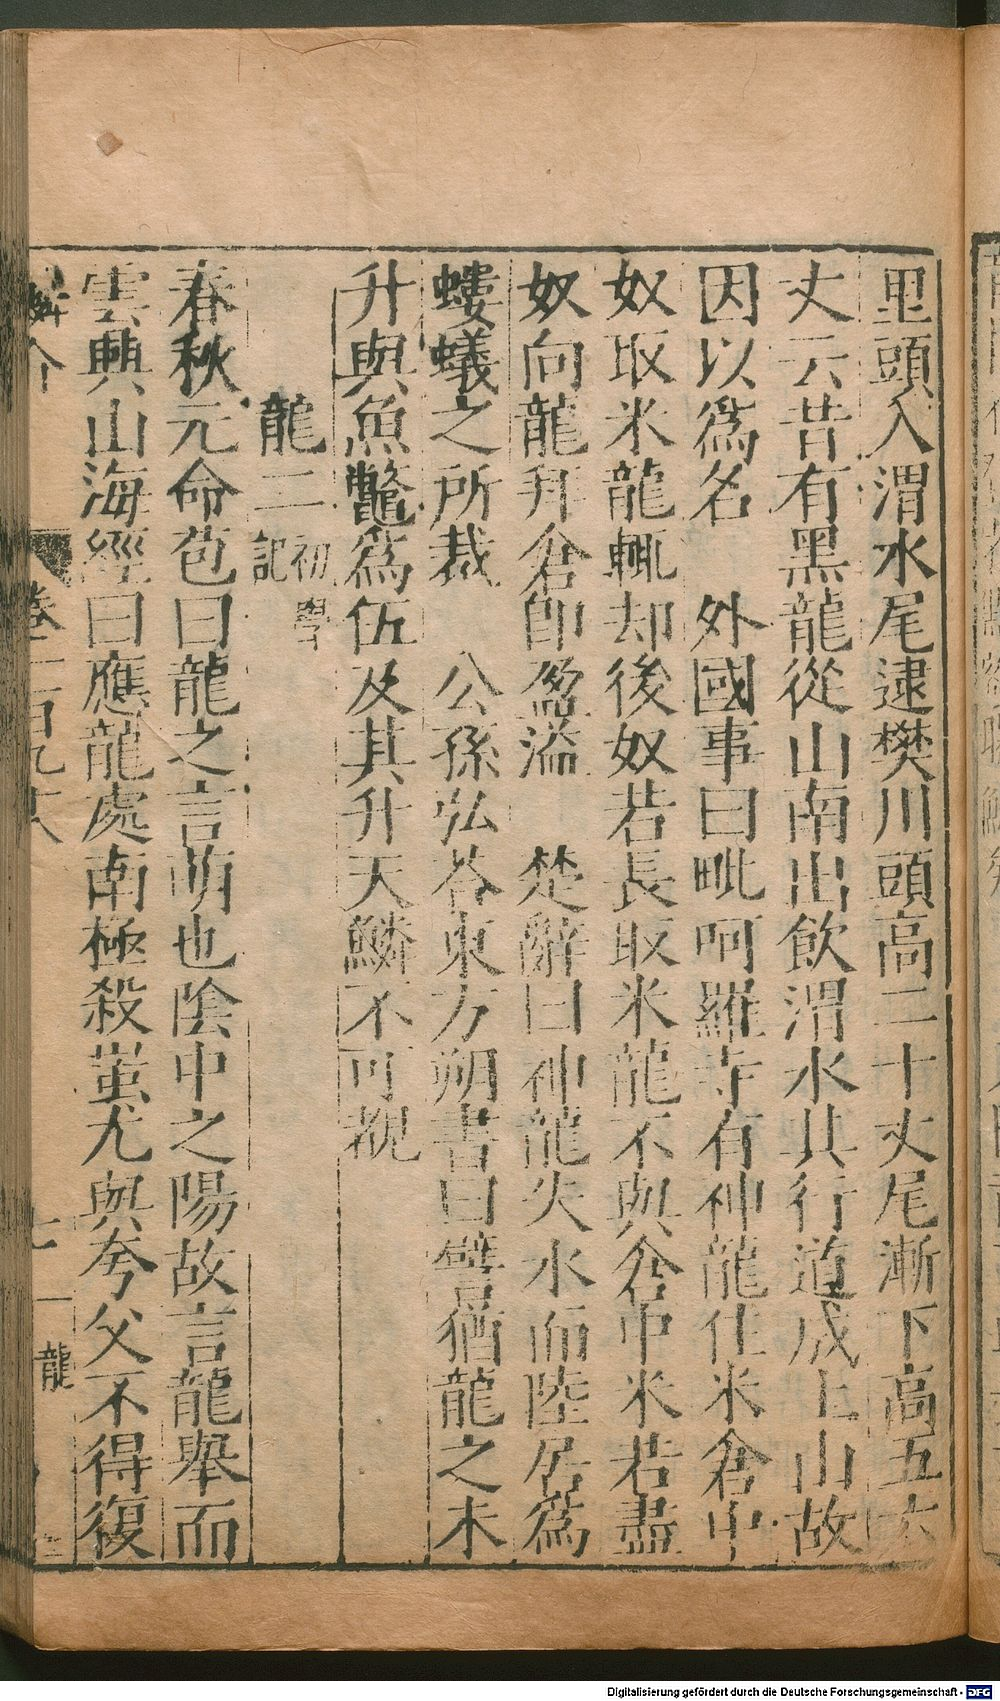 里頭入渭水尾逮樊川頭高二十丈尾漸下高五六
丈云昔有黑龍從山南出飲渭水其行道成土山故
因以為名　外國事曰毗呵羅寺有神龍住米倉中
奴取米龍輒却後奴若長取米龍不與倉中米若盡
奴向龍拜倉即盈溢　楚辭曰神龍失水而陸居為
螻蟻之所裁　公孫弘荅東方朔書曰譬猶龍之未
升與魚鼈為伍及其升天鱗不可覩
龍二初學記
春秋元命苞曰龍之言萌也陰中之陽故言龍舉而
雲興山海經曰應龍處南極殺蚩尤與夸父不得復
鱗介　卷一百九十六　七　龍
Digitalisierung gefördert durch die Deutsche Forschungsgemeinschaft - DFG